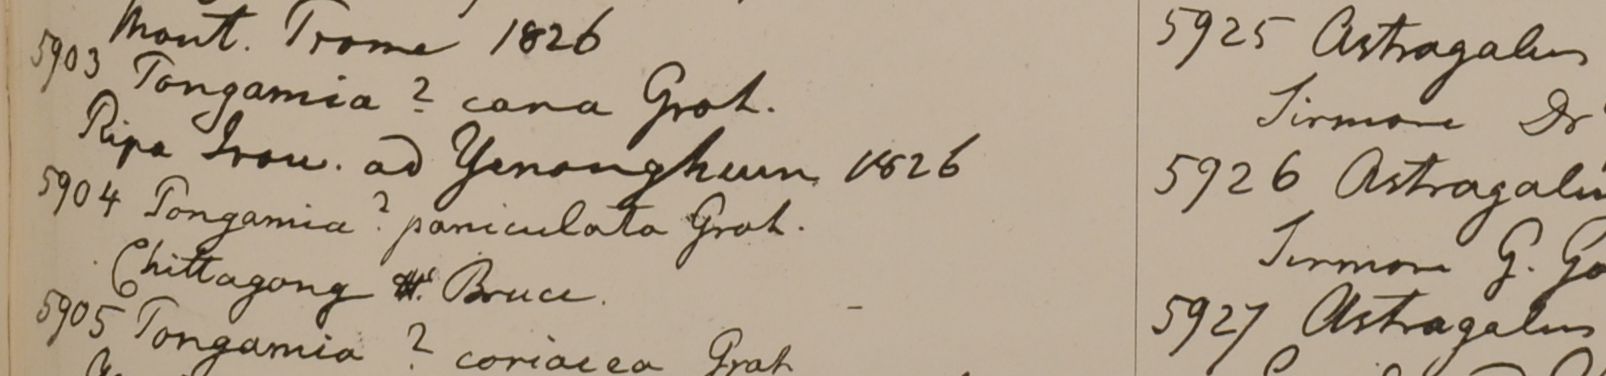 Mont. Prome 1826
5903 Pongamia ? cana Grah.
Ripa Irou. ad Yenangheun 1826
5904 Pongamia ? paniculata Grah.
Chittagong Bruce.
5905 Pongamia ? coriacea Grah
5925 Astragalus
Sirmore Dr
5926 Astragalus
Sirmore G. Go
5927 Astragalus